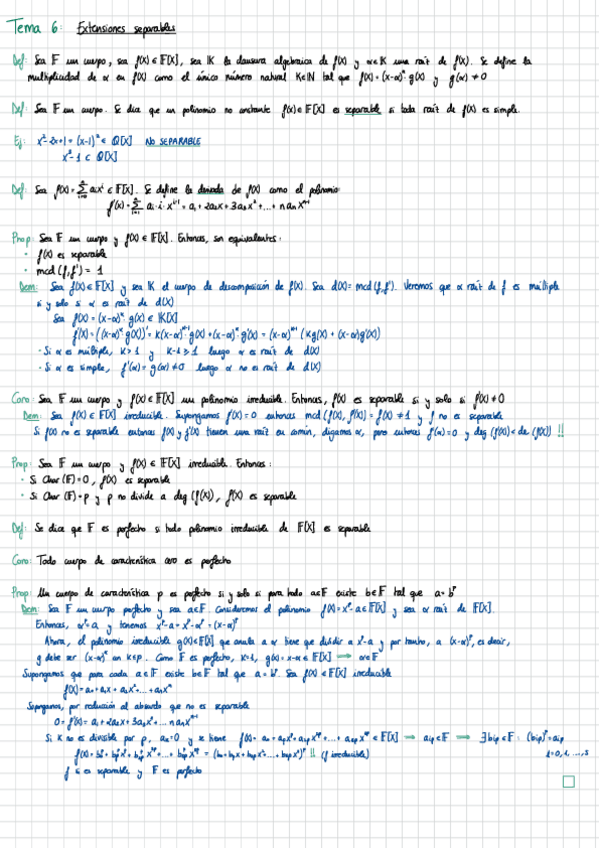 Tema 6: Extensiones separables
Def: Sea F un cuerpo, sea f(x) ∈ F[X], sea K la clausura algebraica de f(x) y α∈K una raíz de f(x). Se define la
multiplicidad de α en f(x) como el único número natural K∈N tal que f(x) = (x-α)^k g(x) y g(α) ≠ 0
Def: Sea F un cuerpo. Se dice que un polinomio no constante f(x) ∈ F[X] es separable si toda raíz de f(x) es simple.
Ej: x²-2x+1 = (x-1)² ∈ Q[X] NO SEPARABLE
x²-1 ∈ Q[X]
Def: Sea f(x) = Σ aᵢxⁱ ∈ F[X]. Se define la derivada de f(x) como el polinomio:
f'(x) = Σ aᵢ·i·xⁱ⁻¹ = a₁ + 2a₂x + 3a₃x² + ... + n aₙxⁿ⁻¹
Prop: Sea F un cuerpo y f(x) ∈ F[X]. Entonces, son equivalentes:
· f(x) es separable
· mcd (f, f') = 1
Dem: Sea f(x) ∈ F[X] y sea K el cuerpo de descomposición de f(x). Sea d(x) = mcd (f, f'). Veremos que α raíz de f es múltiple
si y solo si α es raíz de d(x)
Sea f(x) = (x-α)^k g(x) ∈ K[X]
f'(x) = ((x-α)^k g(x))' = k(x-α)^k-1 g(x) + (x-α)^k g'(x) = (x-α)^k-1 (kg(x) + (x-α)g'(x))
· Si α es múltiple, k>1 y k-1≥1 luego α es raíz de d(x)
· Si α es simple, f'(α) = g(α) ≠ 0 luego α no es raíz de d(x)
Coro: Sea F un cuerpo y f(x) ∈ F[X] un polinomio irreducible. Entonces, f(x) es separable si y solo si f'(x) ≠ 0
Dem: Sea f(x) ∈ F[X] irreducible. Supongamos f'(x) = 0 entonces mcd (f(x), f'(x)) = f(x) ≠ 1 y f no es separable
Si f(x) no es separable entonces f(x) y f'(x) tienen una raíz en común, digamos α, pero entonces f'(α) = 0 y deg (f'(x)) < deg (f(x)) !!
Prop: Sea F un cuerpo y f(x) ∈ F[X] irreducible. Entonces:
· Si Char (F) = 0, f(x) es separable
· Si Char (F) = p y p no divide a deg (f(x)), f(x) es separable
Def: Se dice que F es perfecto si todo polinomio irreducible de F[X] es separable
Coro: Todo cuerpo de característica cero es perfecto
Prop: Un cuerpo de característica p es perfecto si y solo si para todo a∈F existe b∈F tal que a = b^p
Dem: Sea F un cuerpo perfecto y sea a∈F. Consideremos el polinomio f(x) = x^p - a ∈ F[X] y sea α raíz de F[X].
Entonces, α^p = a, y tenemos x^p - a = x^p - α^p = (x-α)^p
Ahora, el polinomio irreducible g(x) ∈ F[X] que anula a α tiene que dividir a x^p - a y por tanto, a (x-α)^p, es decir,
g debe ser (x-α)^k con k≤p. Como F es perfecto, k=1, g(x) = x-α ∈ F[X] ⟹ α∈F
Supongamos que para cada a∈F existe b∈F tal que a = b^p. Sea f(x) ∈ F[X] irreducible
f(x) = a₀ + a₁x + a₂x² + ... + aₙxⁿ
Supongamos, por reducción al absurdo que no es separable
0 = f'(x) = a₁ + 2a₂x + 3a₃x² + ... n aₙxⁿ⁻¹
Si k no es divisible por p, aₖ = 0 y se tiene f(x) = a₀ + aₚx^p + a₂ₚx^2p + ... + aₛₚx^sp ∈ F[X] ⟹ aᵢₚ ∈ F ⟹ ∃bᵢₚ∈F : (bᵢₚ)^p = aᵢₚ
i = 0, 1, ..., s
!! (f irreducible)
f sí es separable y F es perfecto